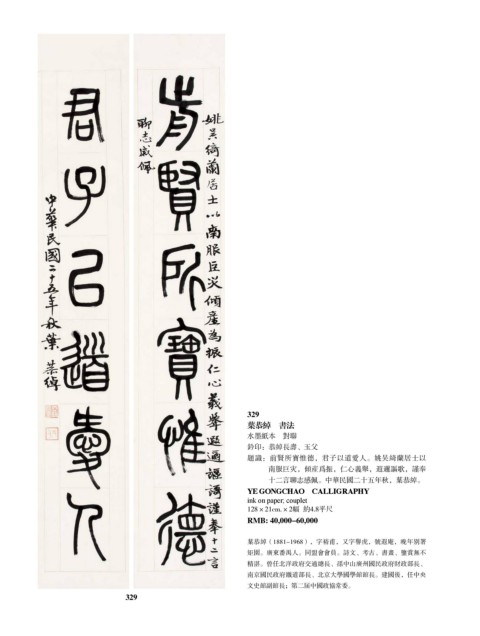 前賢所寶惟德
姚吳綺蘭居士以南服巨災傾產為振仁心義舉遐邇謳謌謹奉十二言
聊志感佩
君子㠯道愛人
中華民國二十五年秋葉恭綽
329
葉恭綽　書法
水墨紙本　對聯
鈐印：恭綽長壽、玉父
題識：前賢所寶惟德，君子以道愛人。姚吳綺蘭居士以
南服巨灾，傾産爲振，仁心義舉，遐邇謳歌，謹奉
十二言聊志感佩。中華民國二十五年秋，葉恭綽。
YE GONGCHAO　CALLIGRAPHY
ink on paper; couplet
128 × 21cm. × 2幅　約4.8平尺
RMB: 40,000–60,000
葉恭綽（1881–1968），字裕甫，又字譽虎，號遐庵，晚年別署
矩園。廣東番禺人。同盟會會員。詩文、考古、書畫、鑒賞無不
精湛。曾任北洋政府交通總長、孫中山廣州國民政府財政部長、
南京國民政府鐵道部長、北京大學國學館館長。建國後，任中央
文史館副館長；第二屆中國政協常委。
329